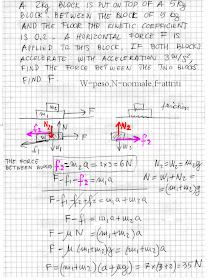 A 2kg BLOCK IS PUT ON TOP OF A 5kg
BLOCK. BETWEEN THE BLOCK OF 5 kg
AND THE FLOOR THE KINETIC COEFFICIENT
IS 0,2. A HORIZONTAL FORCE F IS
APPLIED TO THIS BLOCK. IF BOTH BLOCKS
ACCELERATE WITH ACCELERATION 3 m/s²,
FIND THE FORCE BETWEEN THE TWO BLOCKS
FIND F
W=peso,N=normale,F=attriti
F
THE FORCE
BETWEEN BLOCKS
f₂=m₂a = 2×3=6N
N₂=W₂=m₂g
F-f₁-f₂=m₁a
N=W₁+W₂=
=(m₁+m₂)g
F-f₁-f₂+f₂=m₁a+m₂a
F-f₁=m₁a+m₂a
F-μN=(m₁+m₂)a
F-μ(m₁+m₂)g=(m₁+m₂)a
F=(m₁+m₂)(a+μg)=7×(3+2)=35N